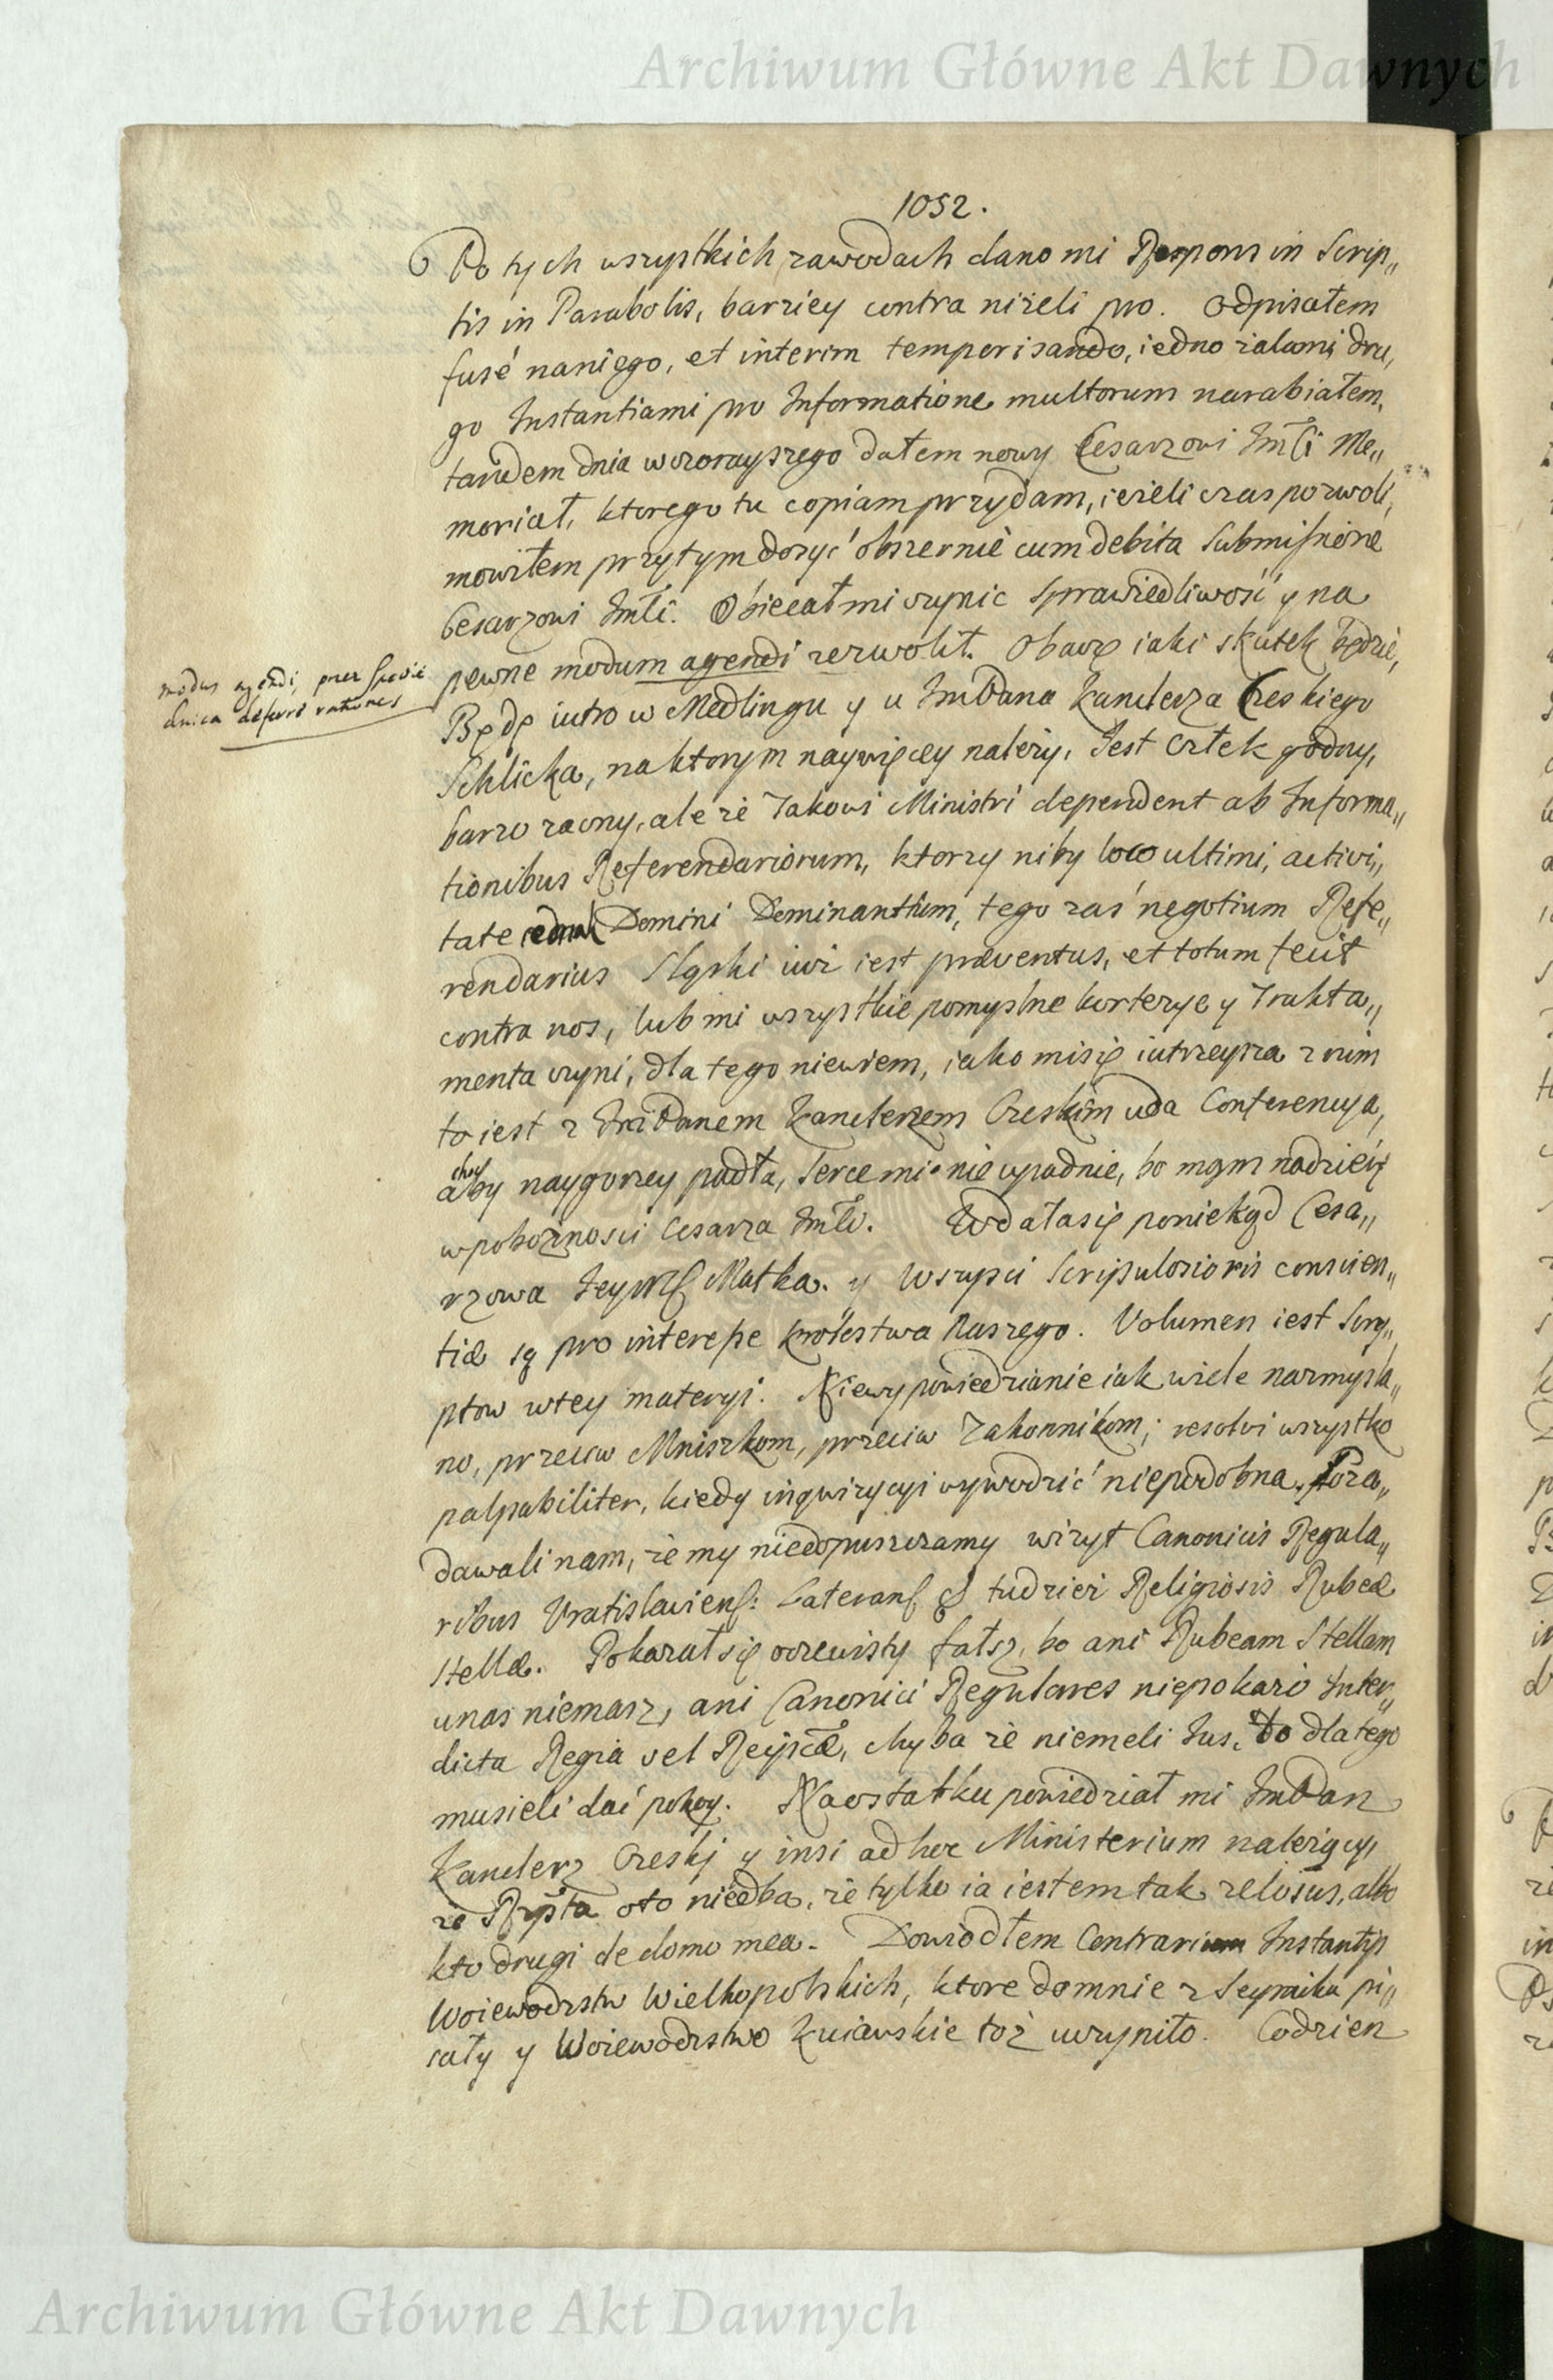 Archiwum Główne Akt Dawnych
1052.
Po tych wszystkich zawodach dano mi Respons in Scrip„
tis in Parabolis, barziey contra niżeli pro. Odpisałem
fusé naniego, et interim temperisando, iedno żalami dru„
go Instantiami pro Informatione multorum narabiałem,
tandem dnia wczorayszego dałem nowy Cesarzowi Jmći Me„
moriał, ktorego tu copiam przydam, ieżeli czas pozwoli,
mowiłem przytym dosyć obszernie cum debita Submissione
Cesarzowi Jmći. Obiecał mi czynic Sprawiedliwość y na
pewne modum agendi zezwolił. Obaczę iaki skutek będzie,
modus agendi,
deferre rationes
Będę iutro w Medlingu y u Jm Pana Kanclerza Czeskiego
Schlicka, na ktorym naywięcey należy, Jest Człek godny,
barzo zacny, ale że Takowi Ministri dependent ab Informa„
tionibus Referendariorum, ktorzy niby loco ultimi, activi„
tate iednak Domini Dominantium, tego zaś negotium Refe„
rendarius Sląski iuż iest præventus, et totum fecit
contra nos, lub mi wszystkie pomyslne kortezye y Trakta„
menta czyni, dla tego niewiem, iako misię iutrzeysza z nim
to iest z Panem Kanclerzem Czeskim uda Conferencya,
choćby naygorzey padła, Serce mi nie upadnie, bo mąm nadzieię
w pobożnosci Cesarza Jmći. Wdałasię poniekąd Cesa„
rzowa Jeymć Matka. y Wszysci Scrupulosioris conscien„
tiæ są pro interesse krolestwa Naszego. Volumen iest Scry„
ptow wtey materyi. Niewypowiedzianie iak wiele nazmysla„
no, przeciw Mniszkom, przeciw Zakonnikom; resolvi wszystko
palpabiliter, kiedy inqwizycyi wywodzić niepodobna.
dawali nam, że my niedopuszczamy wizyt Canonicis Regula„
ribus Vratislaviens: Laterans & tudzież Religiosis Rubeæ
Stellæ. Pokazał się oczewisty fałsz, bo ani Rubeam Stellam
unas niemasz, ani Canonici Regulares niepokażo Inter„
dicta Regia vel Reipcæ, chyba że niemeli Jus, to dlatego
musieli dać pokoy. Naostatku powiedział mi Jm Pan
Kanclerz Czeski y insi ad hoc Ministerium należący,
że Rzpta oto niedba, że tylko ia iestem tak zelosus, albo
kto drugi de domo mea. Dowiodłem Contrarium Instantyi
Woiewodztw Wielkopolskich, ktore domnie z Seymiku pi„
sały y Woiewodztwo Kuiawskie toż uczyniło. Codzien
Archiwum Główne Akt Dawnych